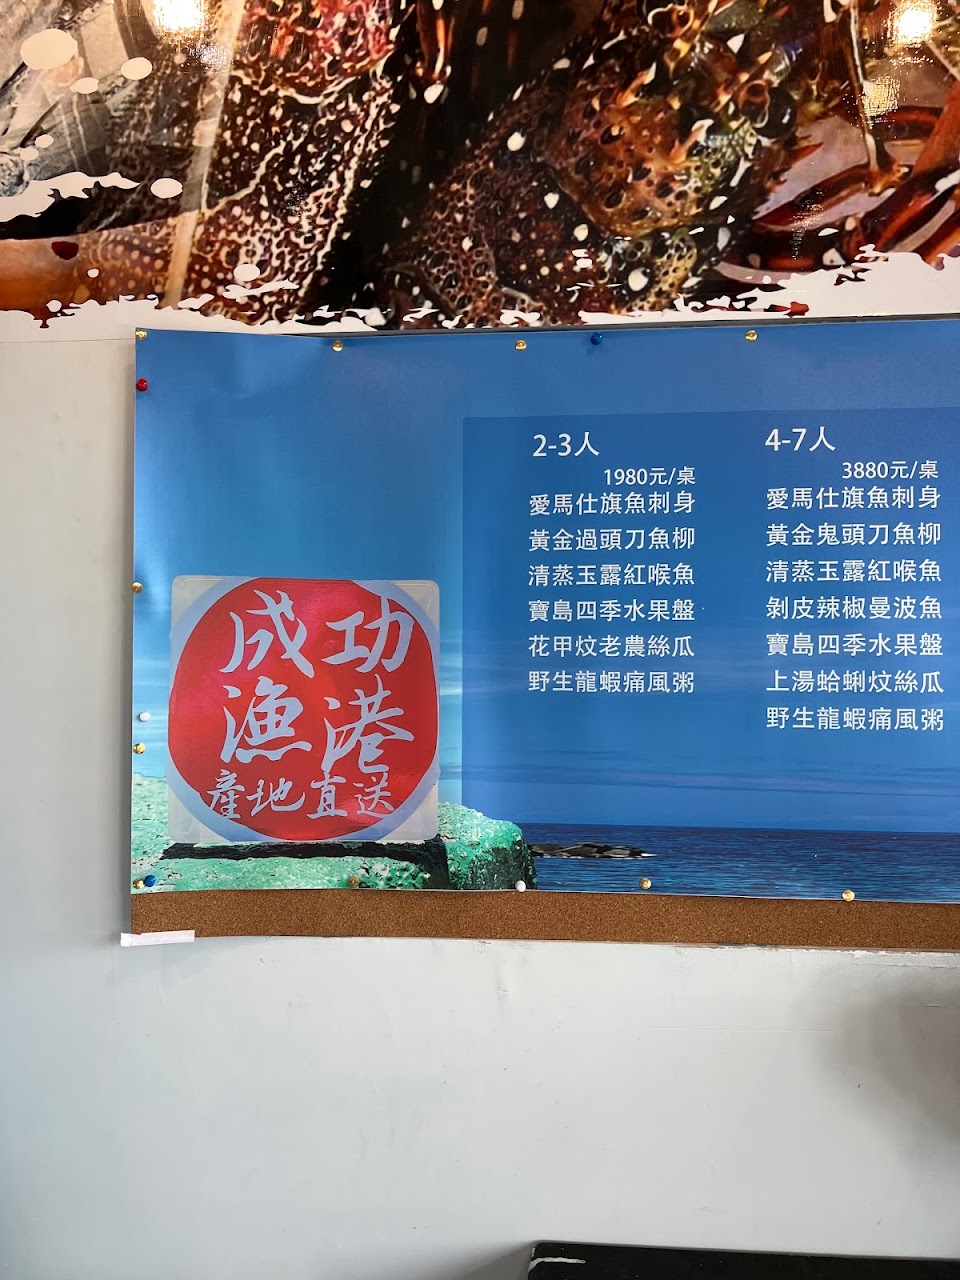 成功
漁港
產地直送
2-3人
1980元/桌
愛馬仕旗魚刺身
黃金過頭刀魚柳
清蒸玉露紅喉魚
寶島四季水果盤
花甲炆老農絲瓜
野生龍蝦痛風粥
4-7人
3880元/桌
愛馬仕旗魚刺身
黃金鬼頭刀魚柳
清蒸玉露紅喉魚
剝皮辣椒曼波魚
寶島四季水果盤
上湯蛤蜊炆絲瓜
野生龍蝦痛風粥